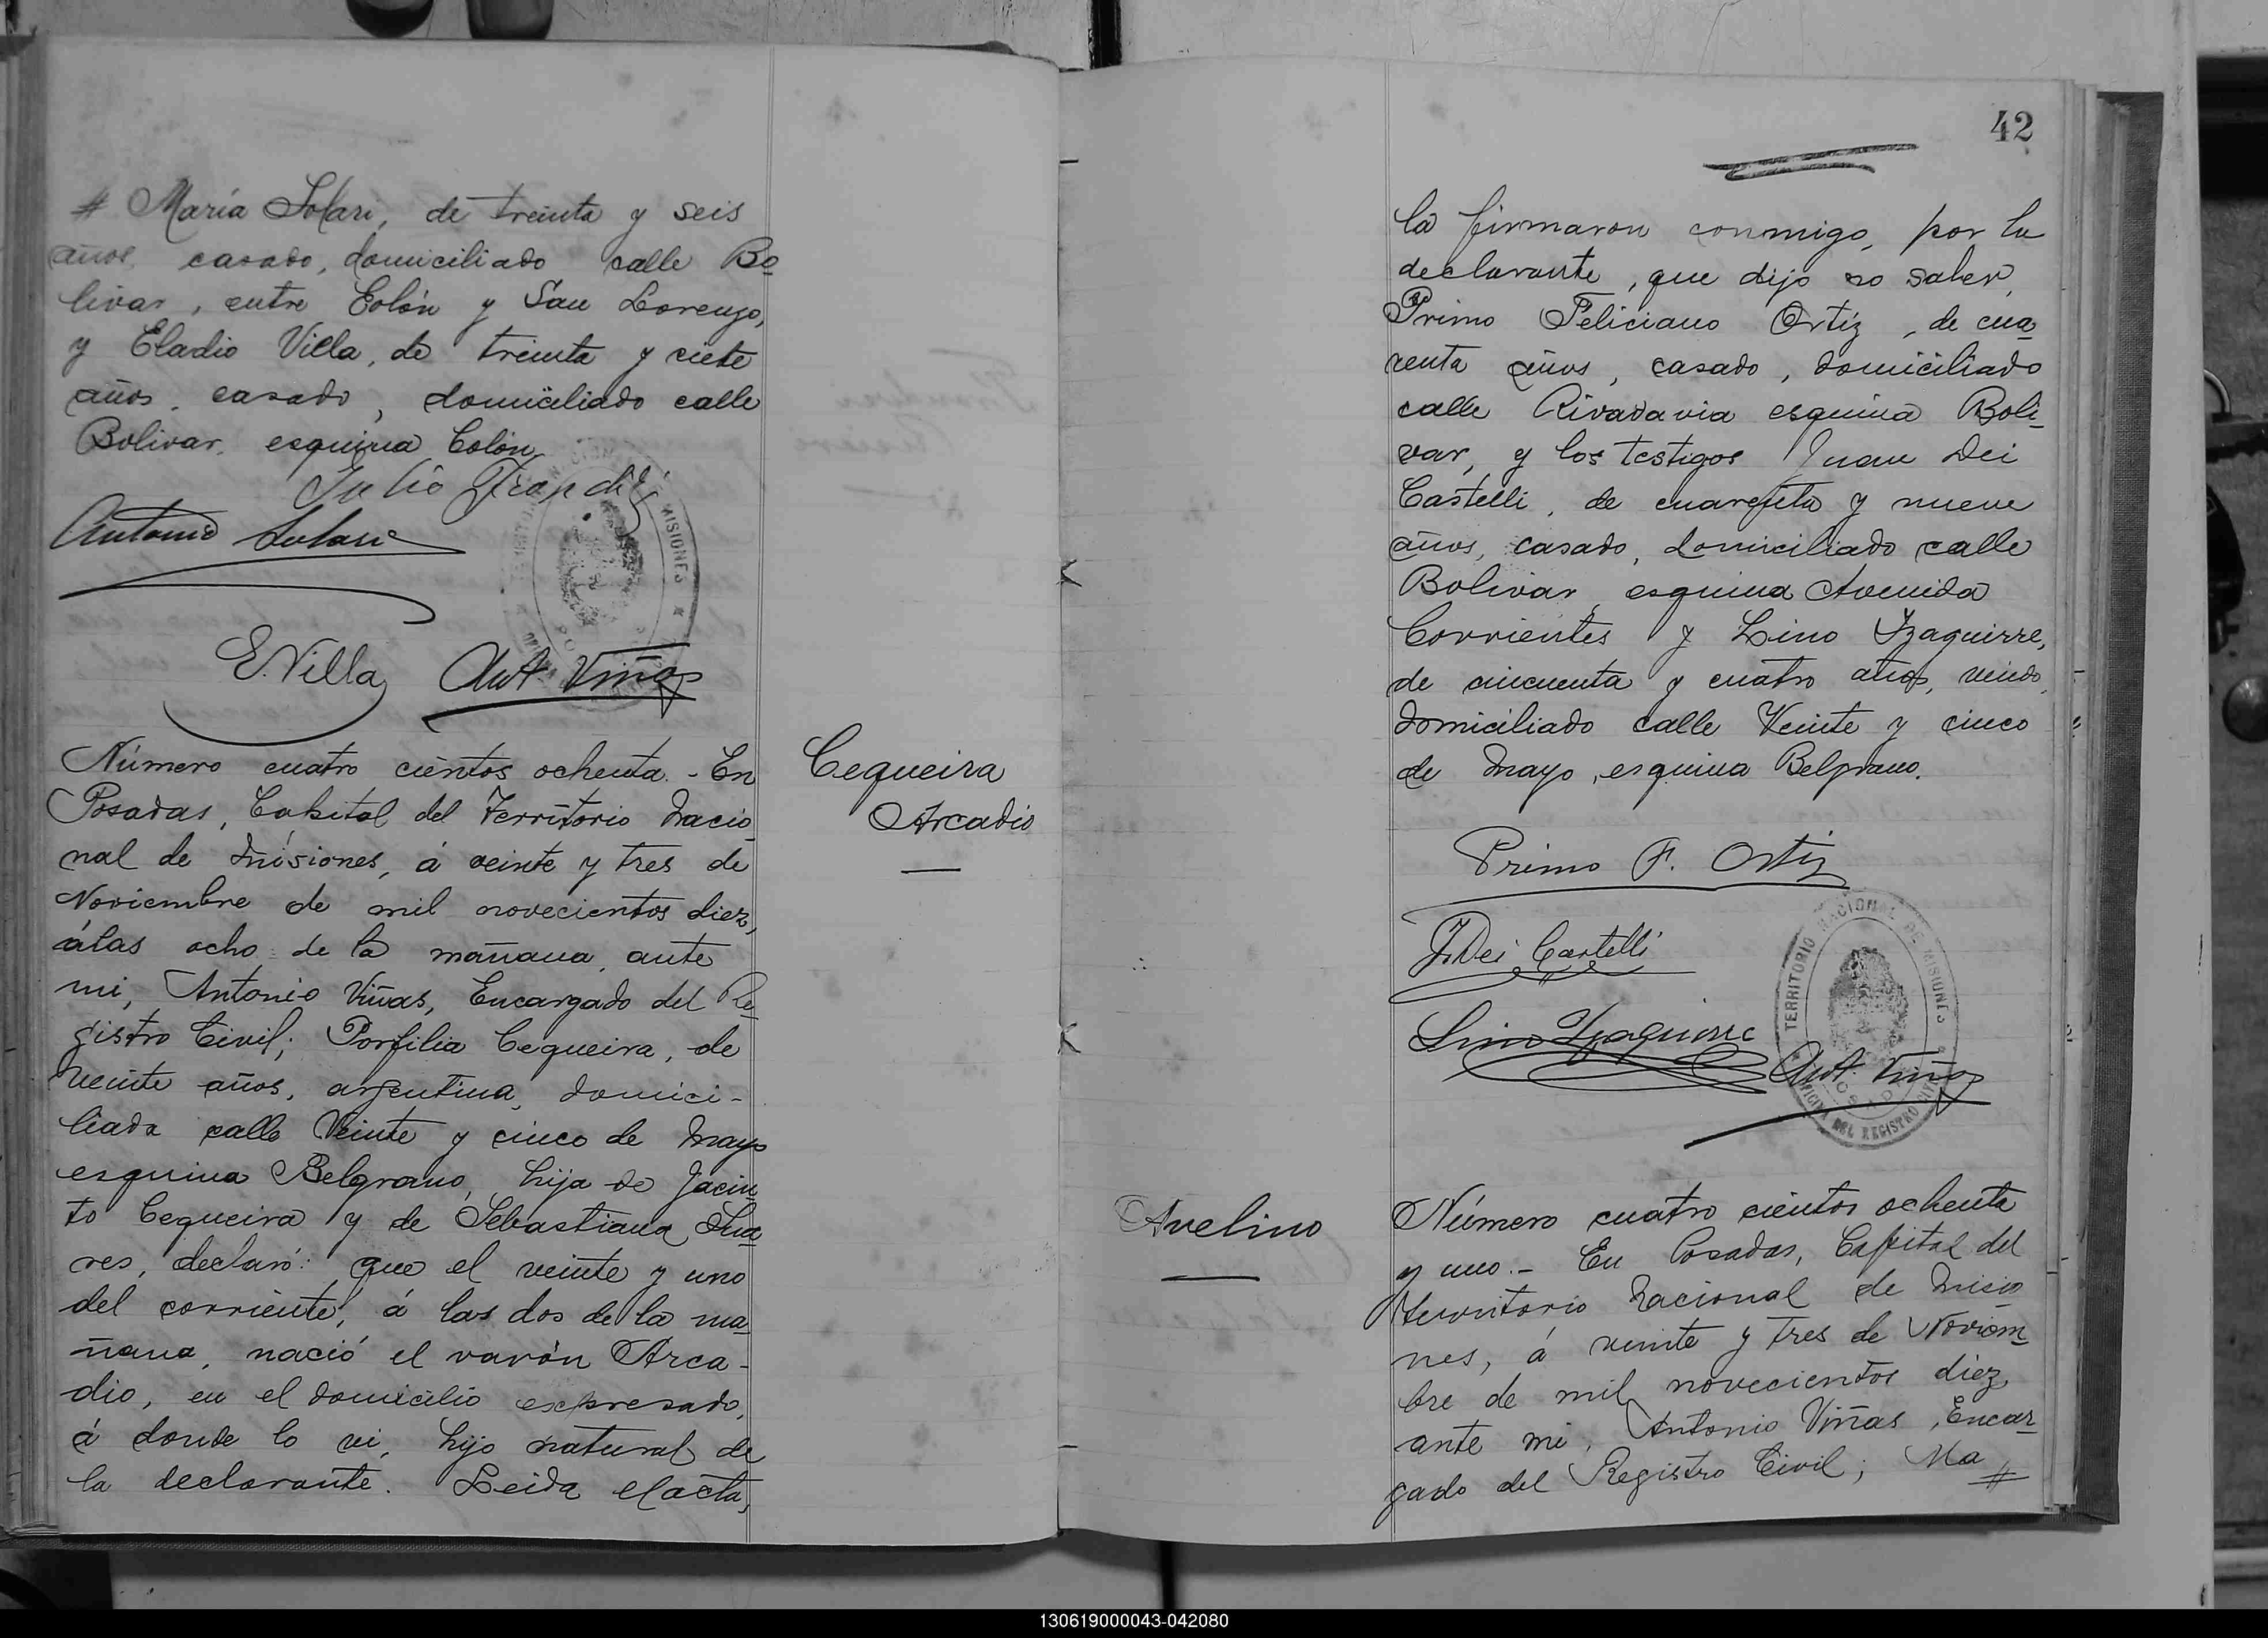 # María Solari, de treinta y seis
años, casado, domiciliado calle Bo
livar, entre Colón y San Lorenzo,
y Eladio Villa, de treinta y ciete
años, casado, domiciliado calle
Bolivar, esquina Colón
Julio
Antonio Solari
E. Villa Ant Viñas
Número cuatro cientos ochenta. - En
Posadas, Capital del Territorio Nacio
nal de Misiones, á veinte y tres de
Noviembre de mil novecientos diez,
á las ocho de la mañana, ante
mi, Antonio Viñas, Encargado del Re
gistro Civil; Porfilia Cequeira, de
veinte años, argentina, domici-
liada calle Veinte y cinco de Mayo
esquina Belgrano, hija de Jacin
to Cequeira y de Sebastiana Sua
res, declaró: que el veinte y uno
del corriente, á las dos de la ma
ñana, nació el varón Arca-
dio, en el domicilio expresado,
á donde lo vi, hijo natural de
la declarante. Leida el acta,
Cequeira
Arcadio
42
la firmaron conmigo, por la
declarante, que dijo no saber,
Primo Feliciano Ortíz, de cua
renta años, casado, domiciliado
calle Rivadavia esquina Boli
var, y los testigos Juan Dei
Castelli, de cuarenta y nueve
años, casado, domiciliado calle
Bolivar, esquina Avenida
Corrientes y Lino Yzaguirre,
de cincuenta y cuatro años, viudo,
domiciliado calle Veinte y cinco
de Mayo, esquina Belgrano.
Primo F. Ortiz
J. Dei Castelli
Lino Yzaguirre
Ant. Viñas
TERRITORIO NACIONAL DE MISIONES
OFICINA DEL REGISTRO CIVIL
Avelino
Número cuatro cientos ochenta
y uno. - En Posadas, Capital del
territorio Nacional de Misio
nes, á veinte y tres de Noviem
bre de mil novecientos diez,
ante mi, Antonio Viñas, Encar
gado del Registro Civil; Ma
#
130619000043-042080